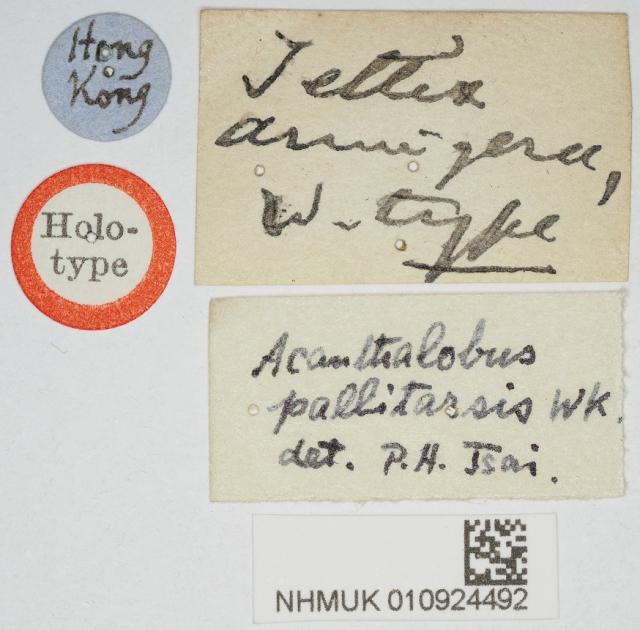 Hong
Kong
Holo-
type
Tettix
armigera,
W. type
Acanthalobus
pallitarsis Wk.
det. P.H. Tsai.
NHMUK 010924492